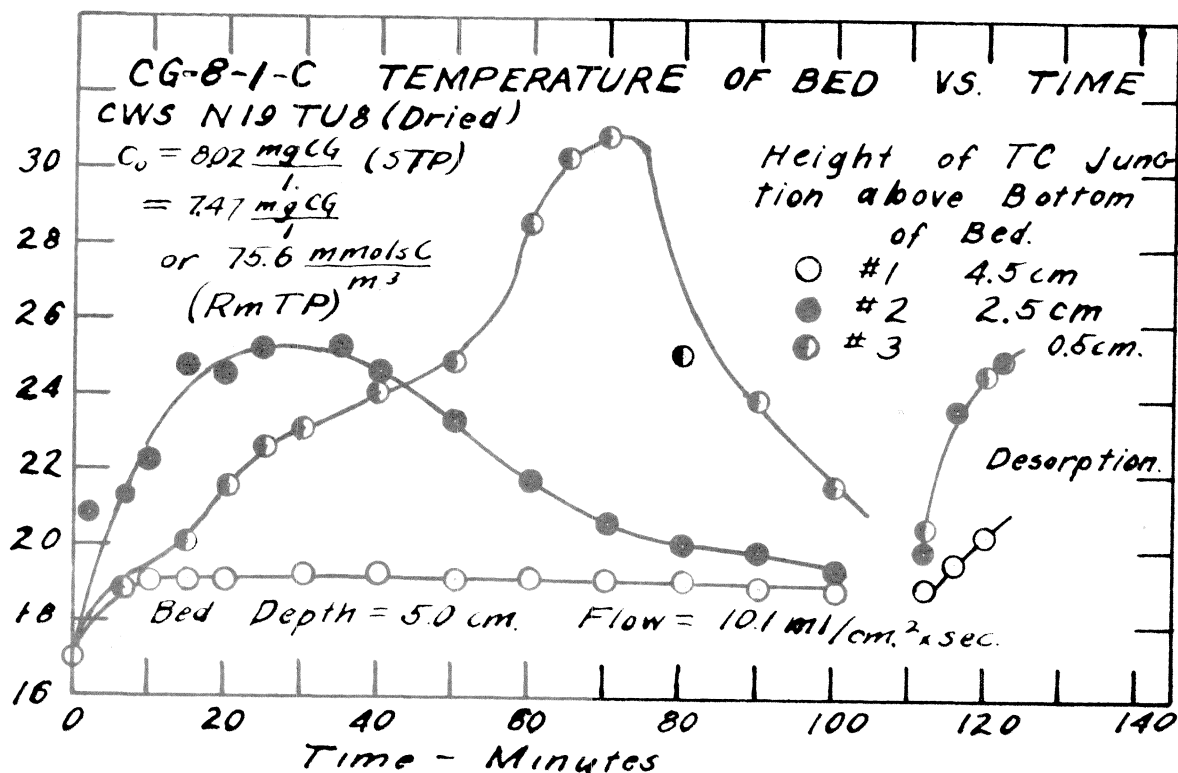 CG-8-1-C TEMPERATURE OF BED VS. TIME
CWS N19 TU8 (Dried)
C₀ = 8.02 mg CG / l. (STP)
= 7.47 mg CG / l
or 75.6 mmols C / m³
(Rm TP)
Height of TC Junc-
tion above Bottom
of Bed.
#1 4.5 cm
#2 2.5 cm
#3 0.5 cm.
Desorption.
Bed Depth = 5.0 cm. Flow = 10.1 ml/cm.² x sec.
30
28
26
24
22
20
18
16
0 20 40 60 80 100 120 140
Time - Minutes